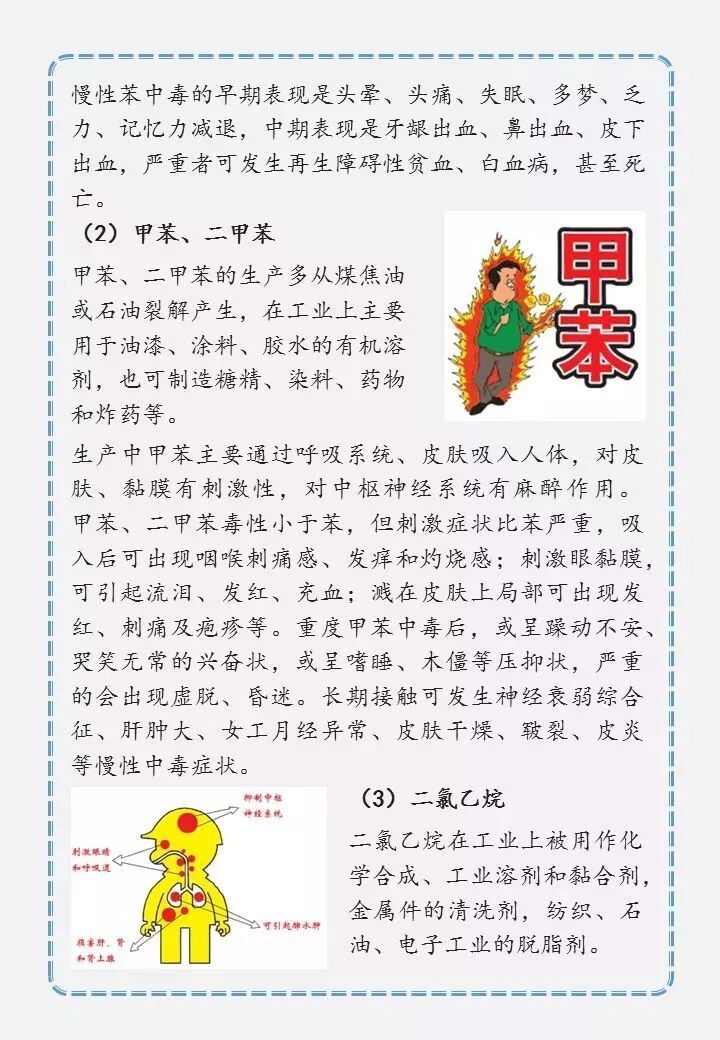 慢性苯中毒的早期表现是头晕、头痛、失眠、多梦、乏
力、记忆力减退，中期表现是牙龈出血、鼻出血、皮下
出血，严重者可发生再生障碍性贫血、白血病，甚至死
亡。
（2）甲苯、二甲苯
甲苯、二甲苯的生产多从煤焦油
或石油裂解产生，在工业上主要
用于油漆、涂料、胶水的有机溶
剂，也可制造糖精、染料、药物
和炸药等。
甲苯
生产中甲苯主要通过呼吸系统、皮肤吸入人体，对皮
肤、黏膜有刺激性，对中枢神经系统有麻醉作用。
甲苯、二甲苯毒性小于苯，但刺激症状比苯严重，吸
入后可出现咽喉刺痛感、发痒和灼烧感；刺激眼黏膜，
可引起流泪、发红、充血；溅在皮肤上局部可出现发
红、刺痛及疱疹等。重度甲苯中毒后，或呈躁动不安、
哭笑无常的兴奋状，或呈嗜睡、木僵等压抑状，严重
的会出现虚脱、昏迷。长期接触可发生神经衰弱综合
征、肝肿大、女工月经异常、皮肤干燥、皲裂、皮炎
等慢性中毒症状。
抑制中枢
神经系统
刺激眼睛
和呼吸道
可引起肺水肿
损害肝、肾
和肾上腺
（3）二氯乙烷
二氯乙烷在工业上被用作化
学合成、工业溶剂和黏合剂，
金属件的清洗剂，纺织、石
油、电子工业的脱脂剂。